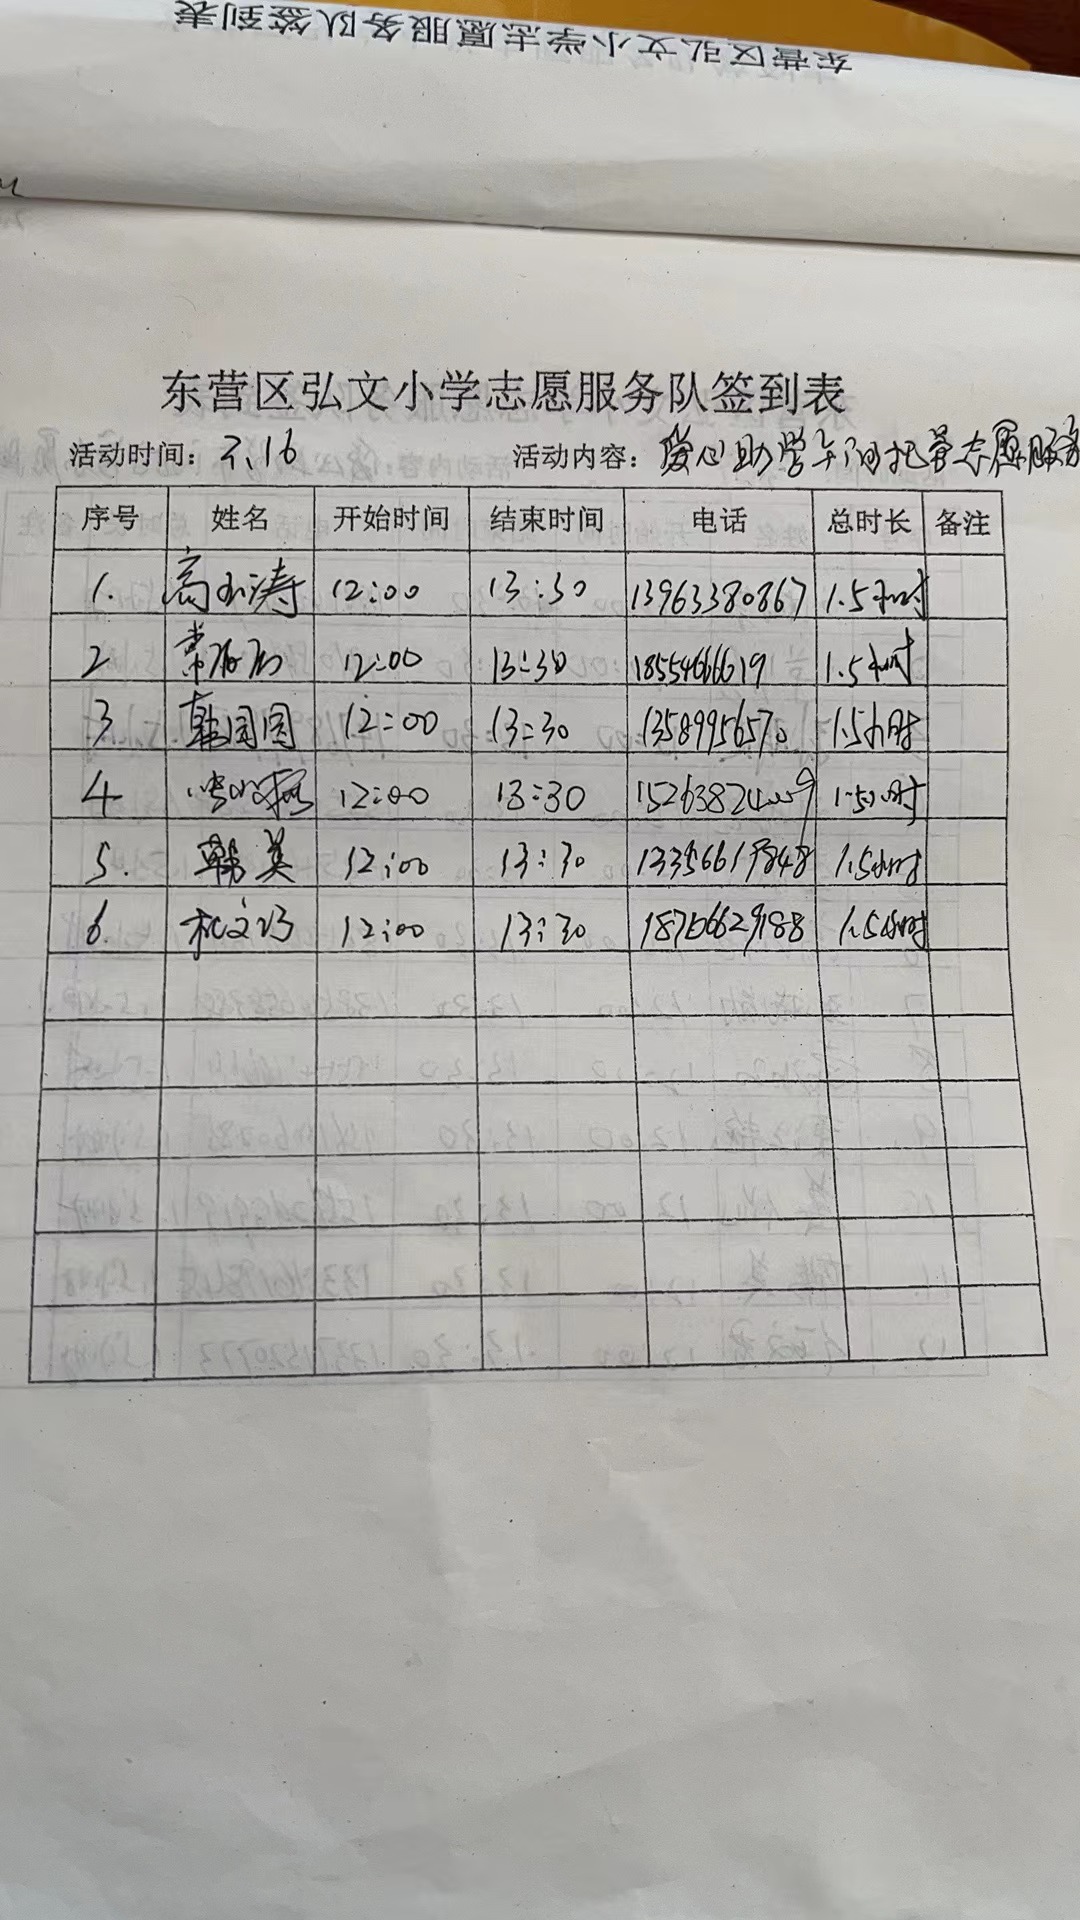 东营区弘文小学志愿服务队签到表
东营区弘文小学志愿服务队签到表
活动时间：3.16 活动内容：爱心助学午间托管志愿服务
序号 姓名 开始时间 结束时间 电话 总时长 备注
1. 高玉涛 12:00 13:30 13963380867 1.5小时
2 12:00 13:30 18554666619 1.5小时
3 韩园园 12:00 13:30 13589956570 1.5小时
4 12:00 13:30 1.5小时
5. 韩英 12:00 13:30 13356617848 1.5小时
6. 杜文巧 12:00 13:30 18766629188 1.5小时